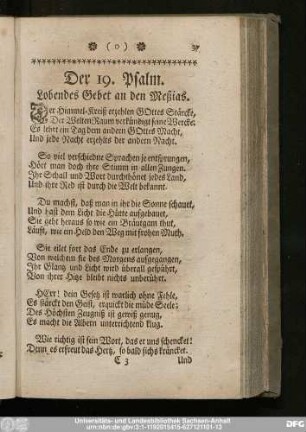 ❀ ( o ) ❀ 37
Der 19. Psalm.
Lobendes Gebet an den Meßias.
Der Himmel-Kreiß erzehlen GOttes Stärcke,
Der Welten Raum verkündigt seine Wercke:
Es lehrt ein Tag dem andern GOttes Macht,
Und jede Nacht erzehlts der andern Nacht.
So viel verschiedne Sprachen je entsprungen,
Hört man doch ihre Stimm in allen Zungen.
Ihr Schall und Wort durchthönet jedes Land,
Und ihre Red ist durch die Welt bekannt.
Du machst, daß man in ihr die Sonne schauet,
Und hast dem Licht die Hütte aufgebauet,
Sie geht heraus so wie ein Bräutgam thut,
Läufft, wie ein Held den Weg mit frohen Muth.
Sie eilet fort das Ende zu erlangen,
Von welchem sie des Morgens aufgegangen,
Ihr Glantz und Licht wird überall gespührt,
Von ihrer Hitze bleibt nichts unberührt.
HErr! dein Gesetz ist warlich ohne Fehle,
Es stärckt den Geist, erquickt die müde Seele:
Des Höchsten Zeugniß ist gewiß genug,
Es macht die Albern unterrichtend klug.
Wie richtig ist sein Wort, das er uns schencket!
Denn es erfreut das Hertz, so bald sichs kräncket.
C 3 Und
Universitäts- und Landesbibliothek Sachsen-Anhalt
urn:nbn:de:gbv:3:1-1192015415-627121101-13
DFG